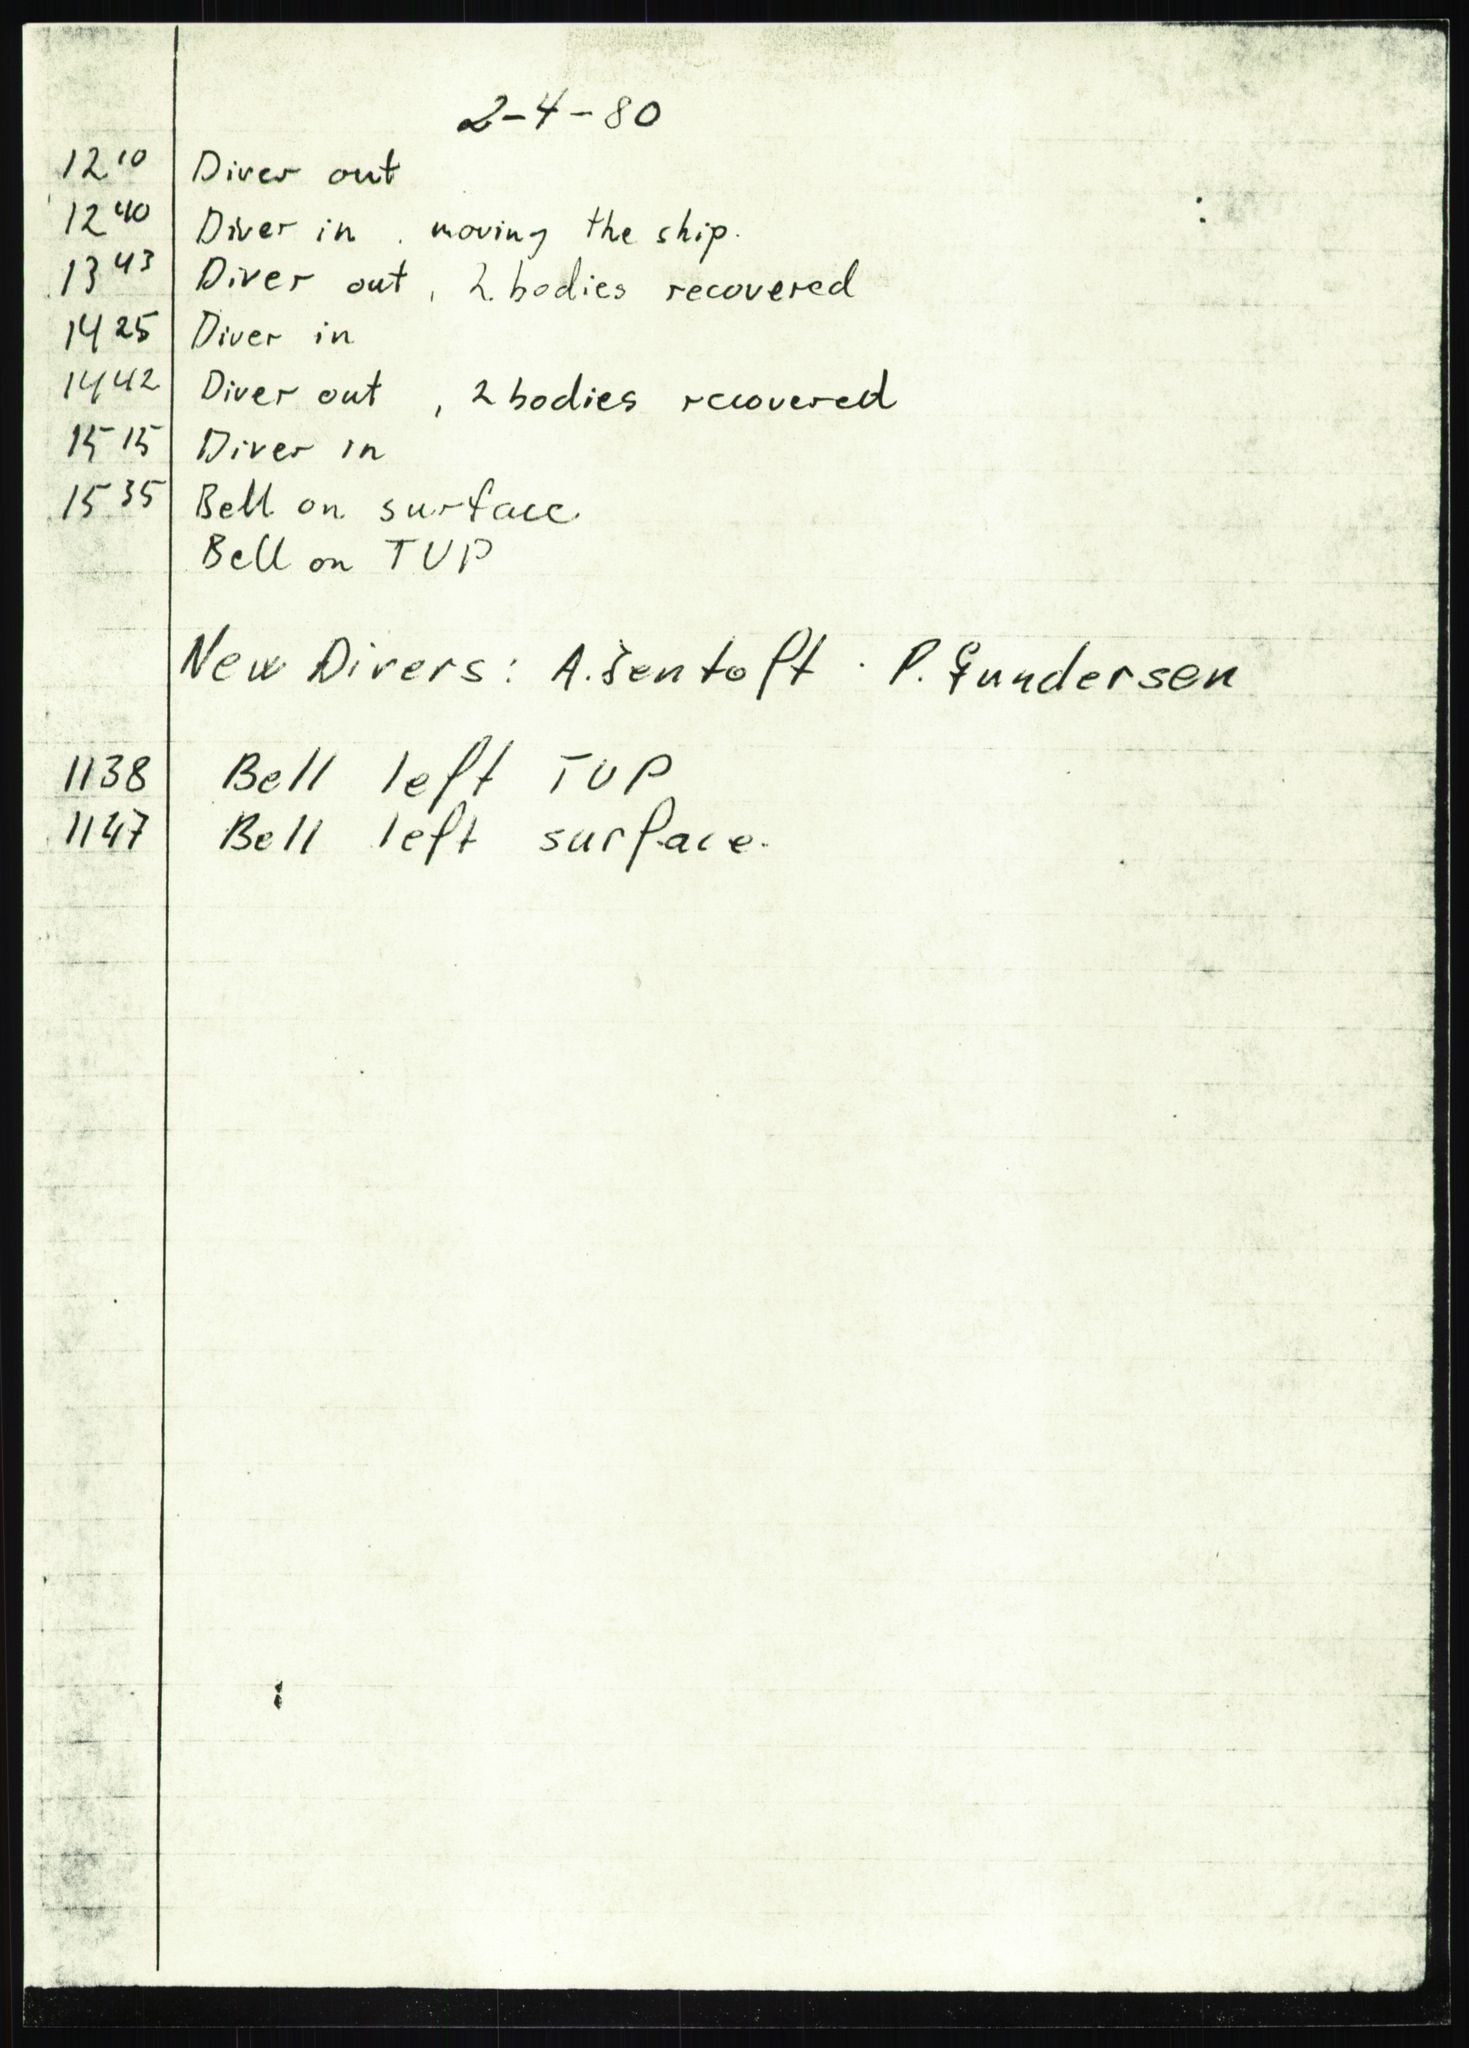 2-4-80
12 10 Diver out
12 40 Diver in . moving the ship.
13 43 Diver out , 2 bodies recovered
14 25 Diver in
14 42 Diver out , 2 bodies recovered
15 15 Diver in
15 35 Bell on surface
Bell on TUP
New Divers : A. Jentoft . P. Gundersen
1138 Bell left TUP
1147 Bell left surface.